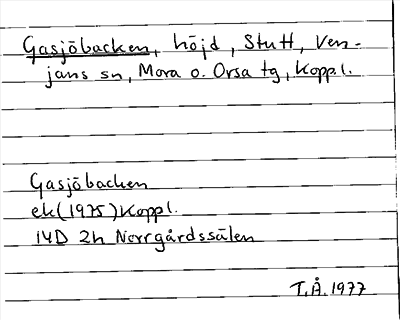 Gasjöbacken, höjd, Stutt, Ven-
jans sn, Mora o. Orsa tg, Koppl.
Gasjöbacken
ek(1975)Koppl.
14D 2h Norrgårdssälen
T.Å.1977